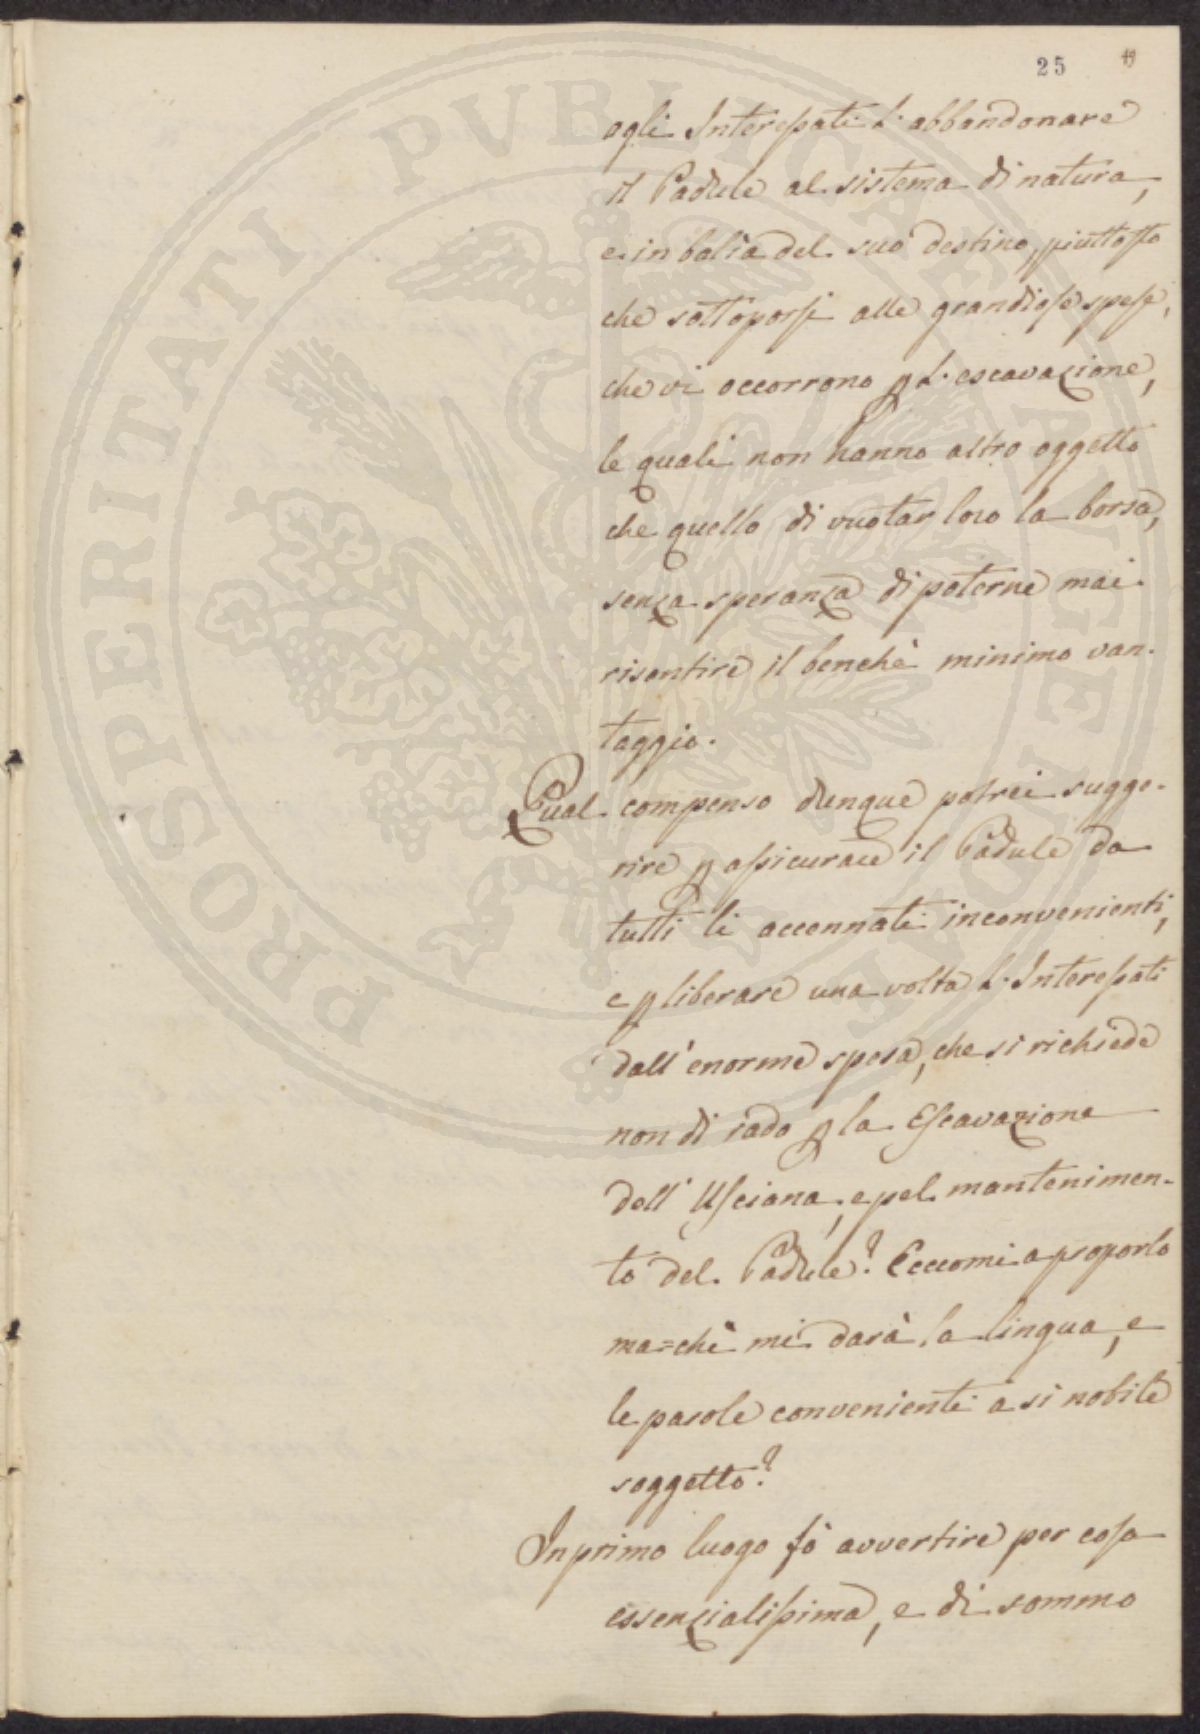 25 49
agli Interessati L'abbandonare
il Padule al sistema di natura,
e in balìa del suo destino, piuttosto
che sottoporsi alle grandiose spese,
che vi occorrono p L'escavazione,
le quali non hanno altro oggetto
che quello di vuotar loro la borsa,
senza speranza di poterne mai
risentire il benchè minimo van-
taggio.
Qual compenso dunque potrei sugge-
rire p assicurare il Padule da
tutti li accennati inconvenienti,
e p liberare una volta L'Interessati
dall' enorme spesa, che si richiede
non di rado p la Escavazione
dell' Usciana, e pel mantenimen-
to del Padule? Eccomi a proporlo
ma=chi mi darà la lingua, e
le parole convenienti a si nobile
soggetto?
In primo luogo fò avvertire per cosa
essenzialissima, e di sommo
PROSPERITATI PVBLICAE AVGENDAE